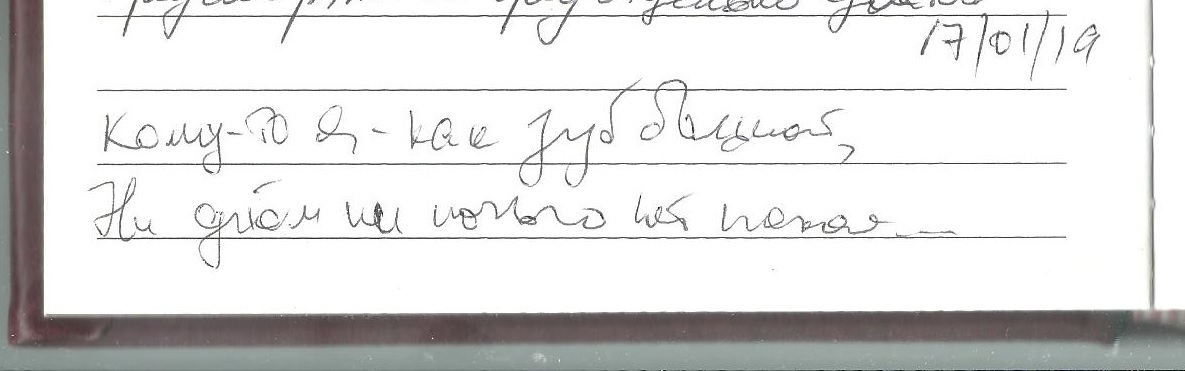 17/01/19
Кому-то я, - как зуб больной,
Ни днём ни ночью нет покоя...